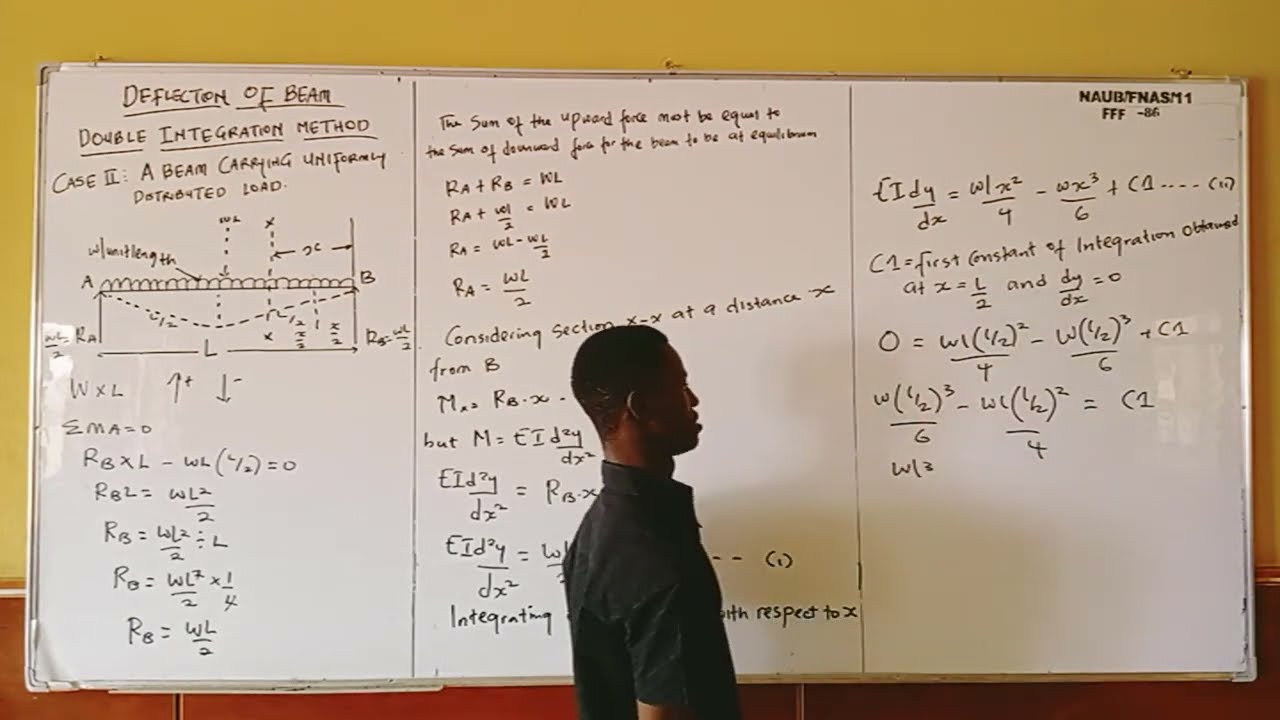 DEFLECTION OF BEAM
DOUBLE INTEGRATION METHOD
CASE II: A BEAM CARRYING UNIFORMLY
DISTRIBUTED LOAD.
WL
x
w/unit length
x
A
B
L/2
L/2
x
x/2
x/2
WL/2 = RA
L
RB = WL/2
W x L ↑+ ↓-
ΣMA=0
RB x L - WL(L/2) = 0
RBL = WL²/2
RB = WL²/2 ÷ L
RB = WL²/2 x 1/4
RB = WL/2
The Sum of the upward force must be equal to
the sum of downward force for the beam to be at equilibrium
RA + RB = WL
RA + wl/2 = WL
RA = WL - WL/2
RA = WL/2
Considering section x-x at a distance x
from B
Mx = RB.x -
but M = EId²y/dx²
EId²y/dx² = RB.x
EId²y/dx² = wl
-- (i)
Integrating
with respect to x
NAUB/FNASM1
FFF -86
EIdy/dx = wlx²/4 - wx³/6 + C1 ---- (ii)
C1 = first constant of Integration obtained
at x = L/2 and dy/dx = 0
0 = wl(L/2)²/4 - w(L/2)³/6 + C1
w(L/2)³/6 - wl(L/2)²/4 = C1
wl3